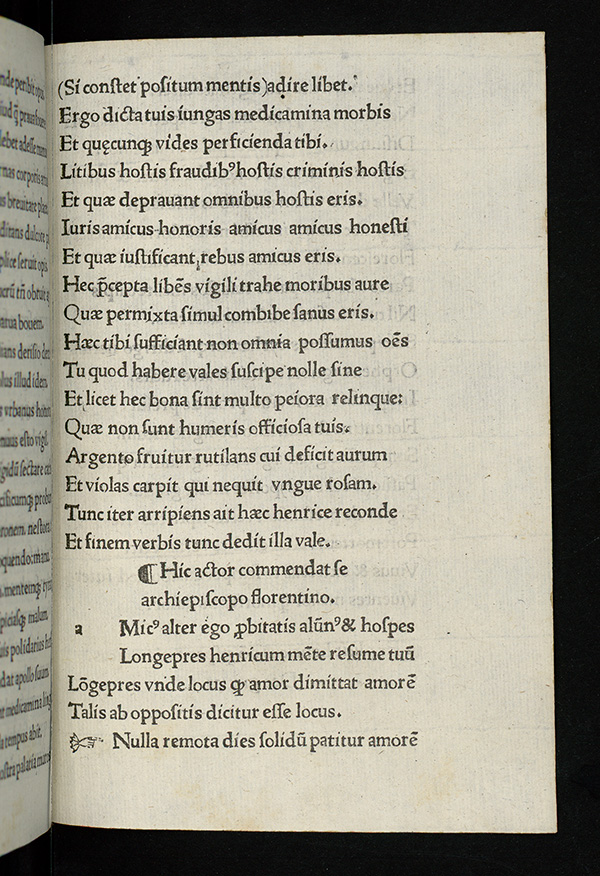 nde peribit opus
(Si constet positum mentis) adire libet.
Ergo dicta tuis iungas medicamina morbis
Et quęcunqꝫ vides perficienda tibi.
Litibus hostis fraudibꝰ hostis criminis hostis
Et quæ deprauant omnibus hostis eris.
Iuris amicus honoris amicus amicus honesti
Et quæ iustificant rebus amicus eris.
Hec p̄cepta libēs vigili trahe moribus aure
Quæ permixta simul combibe sanus eris.
Hæc tibi sufficiant non omnia possumus oēs
Tu quod habere vales suscipe nolle sine
Et licet hec bona sint multo peiora relinque:
Quæ non sunt humeris officiosa tuis.
Argento fruitur rutilans cui deficit aurum
Et violas carpit qui nequit vngue rosam.
Tunc iter arripiens ait hæc henrice reconde
Et finem verbis tunc dedit illa vale.
¶ Hic actor commendat se
archiepiscopo florentino.
a Micꝰ alter ego ꝓbitatis alūnꝰ & hospes
Longepres henricum mēte resume tuū
Lōgepres vnde locus qꝫ amor dimittat amorē
Talis ab oppositis dicitur esse locus.
☞ Nulla remota dies solidū patitur amorē